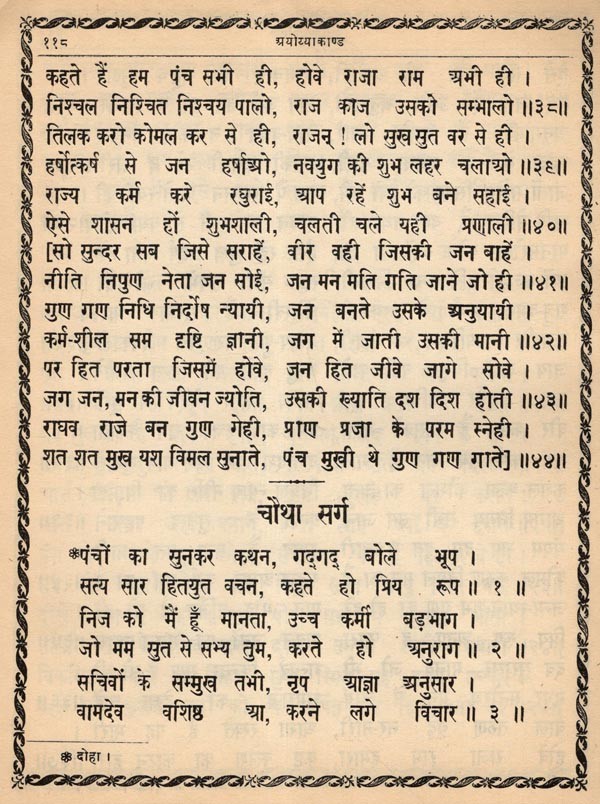 ११८
अयोध्याकाण्ड
कहते हैं हम पंच सभी ही, होवे राजा राम अभी ही
निश्चल निश्चित निश्चय पालो, राज काज उसको सम्भालो॥३८॥
तिलक करो कोमल कर से ही, राजन् ! लो सुख सुत वर से ही ।
हर्षोत्कर्ष से जन हर्षाओ, नवयुग की शुभ लहर चलाओ॥३९॥
राज्य कर्म करे रघुराई, आप रहें शुभ बने सहाई ।
ऐसे शासन हों शुभशाली, चलती चले यही प्रणाली॥४०॥
[सो सुन्दर सब जिसे सराहें, वीर वही जिसकी जन चाहें ।
नीति निपुण नेता जन सोई, जन मन मति गति जाने जो ही॥४१॥
गुण गण निधि निर्दोष न्यायी, जन बनते उसके अनुयायी ।
कर्म-शील सम दृष्टि ज्ञानी, जग में जाती उसकी मानी॥४२॥
पर हित परता जिसमें होवे, जन हित जीवे जागे सोवे ।
जग जन, मन की जीवन ज्योति, उसकी ख्याति दश दिश होती॥४३॥
राघव राजे बन गुण गेही, प्राण प्रजा के परम स्नेही ।
शत शत मुख यश विमल सुनाते, पंच मुखी थे गुण गण गाते]॥४४॥
चौथा सर्ग
❊पंचों का सुनकर कथन, गद्गद् बोले भूप ।
सत्य सार हितयुत वचन, कहते हो प्रिय रूप॥ १ ॥
निज को मैं हूँ मानता, उच्च कर्मी बड़भाग ।
जो मम सुत से सभ्य तुम, करते हो अनुराग॥ २ ॥
सचिवों के सम्मुख तभी, नृप आज्ञा अनुसार ।
वामदेव वशिष्ठ आ, करने लगे विचार॥ ३ ॥
❊ दोहा ।